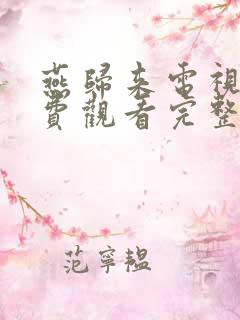 燕歸來電視
費觀看完整
范寧韞